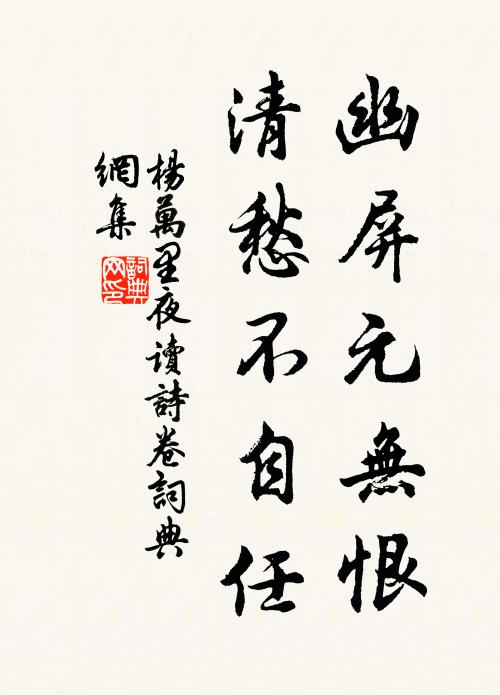 幽屏元無恨
清愁不自任
楊萬里夜讀詩卷詞典
網集
詞典
网印